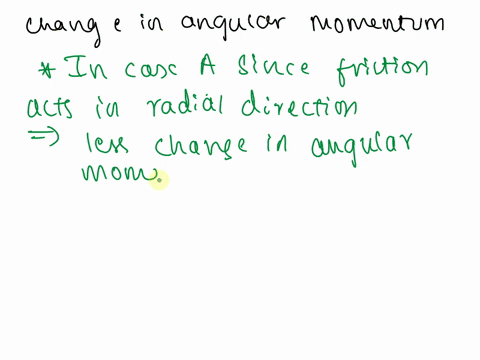 change in angular momentum
* In case A since friction
acts in radial direction
⇒ less change in angular
mom.